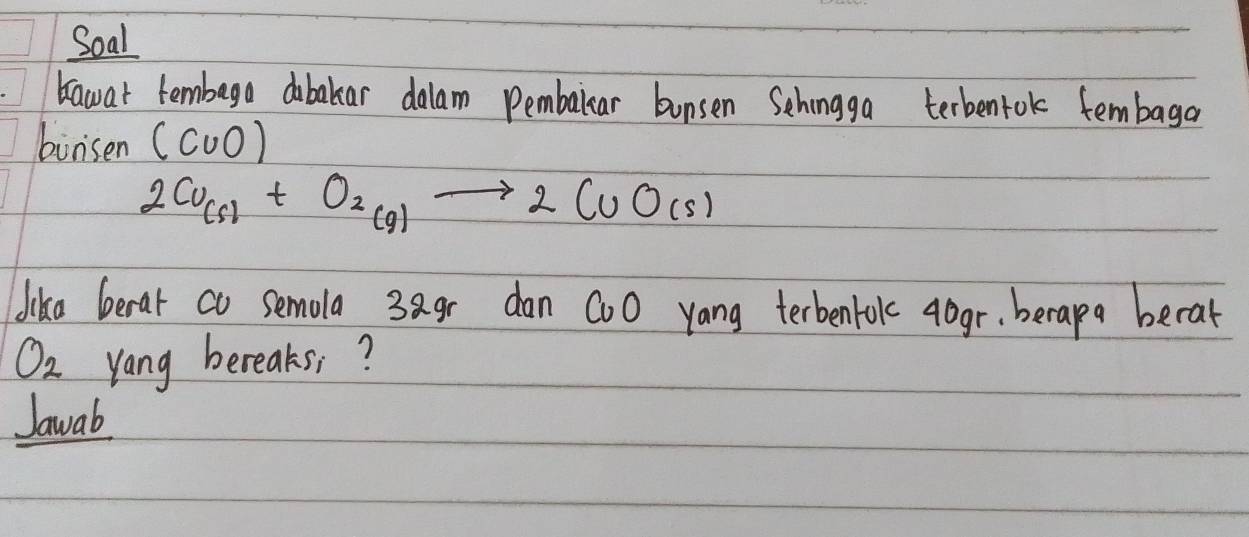 Soal
kawat tembaga dibakar dalam pembakar bunsen Sehingga terbentuk tembaga
bunsen (CuO)
2 Cu(s) + O2 (g) → 2 CuO(s)
Jika berat cu semula 32gr dan CuO yang terbentuk 40gr. berapa berat
O2 yang bereaksi ?
Jawab